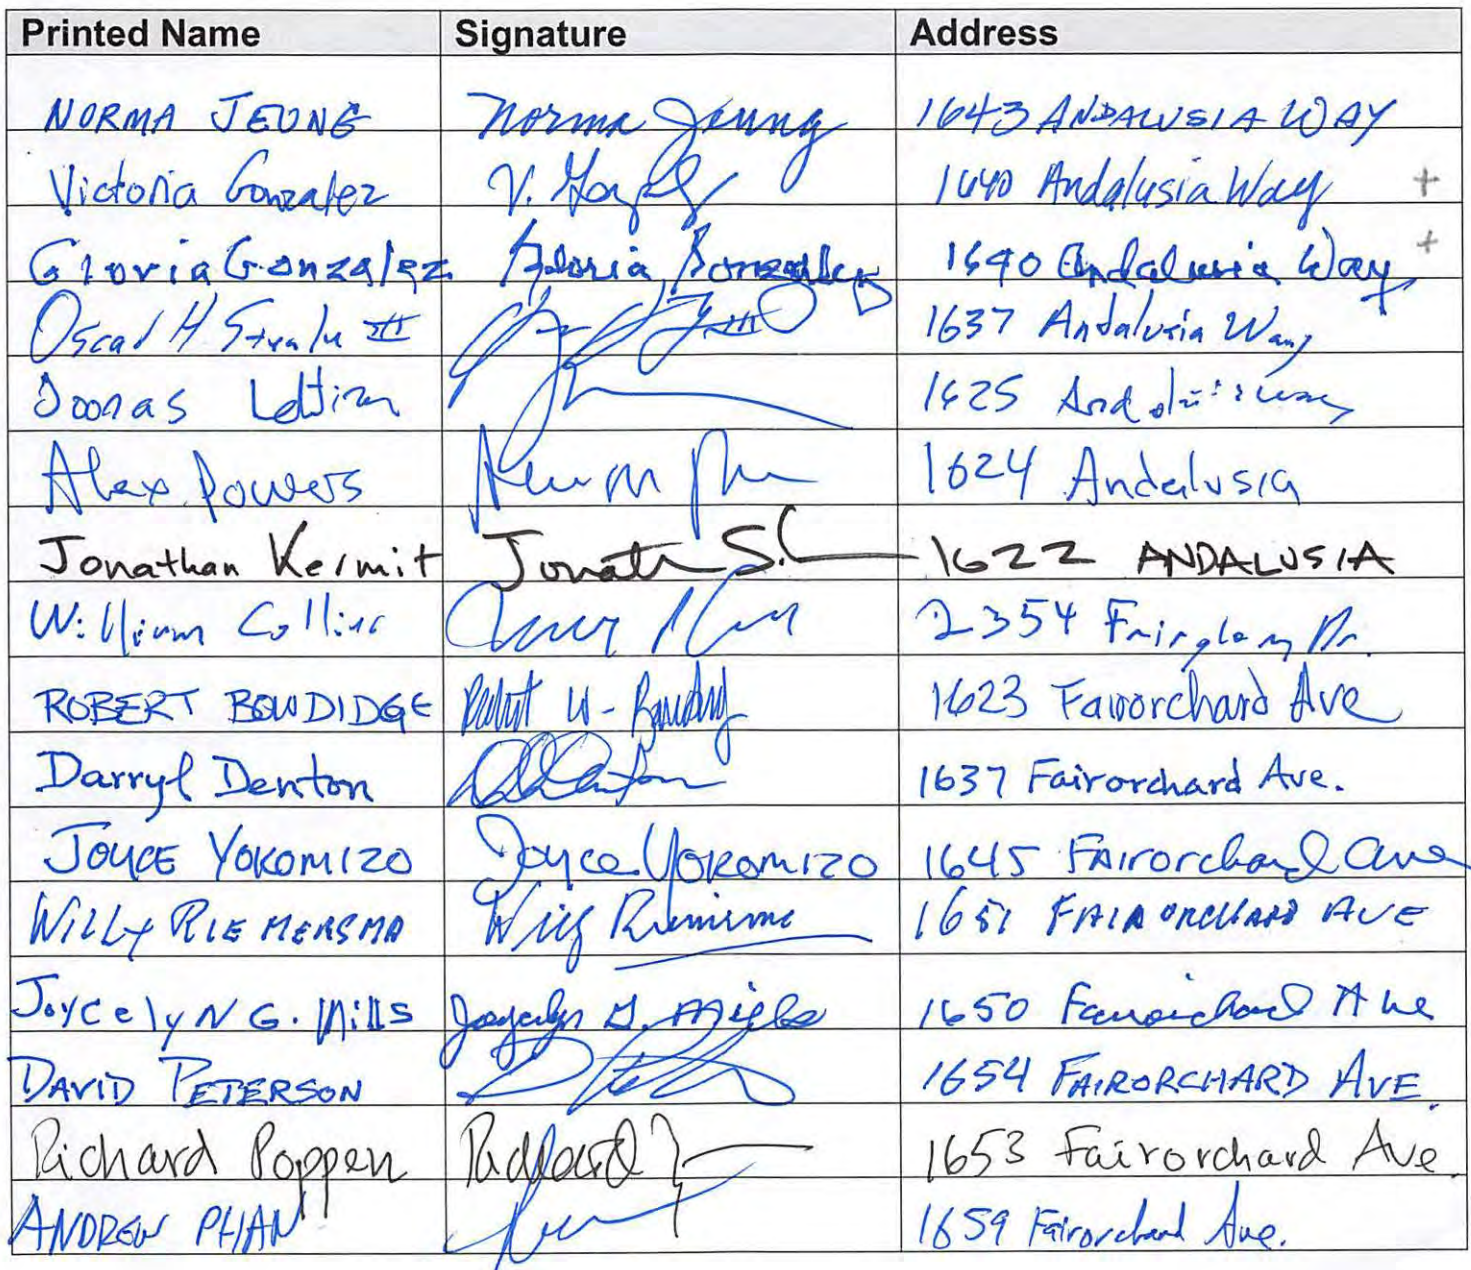 Printed Name Signature Address
NORMA JEUNG Norma Jeung 1643 ANDALUSIA WAY
Victoria Gonzalez V. 1640 Andalusia Way +
Gloria Gonzalez Gloria Gonzalez 1640 Andalusia Way +
Oscar H III 1637 Andalusia Way
1625
Alex Powers 1624 Andalusia
Jonathan Kermit Jonath S. 1622 ANDALUSIA
William Collins 2354 Fairglen Dr.
ROBERT BOWDIDGE Robert W. 1623 Fairorchard Ave
Darryl Denton 1637 Fairorchard Ave.
JOYCE YOKOMIZO Joyce YOKOMIZO 1645 FAIrorchard ave
WILLY RIEMERSMA Willy 1651 FAIRORCHARD AVE
JoyCelyN G. Mills Joycelyn G. Mills 1650 Fairorchard Ave
DAVID PETERSON 1654 FAIRORCHARD AVE.
Richard Poppen 1653 Fairorchard Ave.
ANDREW PHAN 1659 Fairorchard Ave.